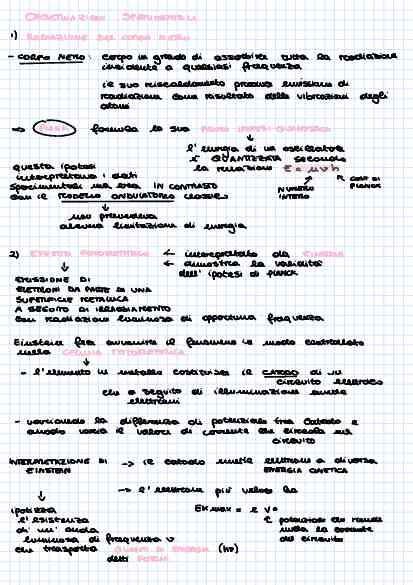 OSSERVAZIONI SPERIMENTALI
1) RADIAZIONE DEL CORPO NERO
- CORPO NERO: corpo in grado di assorbire tutta la radiazione
incidente a qualsiasi frequenza
il suo riscaldamento provoca emissioni di
radiazione come risultato delle vibrazioni degli
atomi
=> PLANCK formula la sua PRIMA IPOTESI QUANTISTICA
l'energia di un oscillatore
è QUANTIZZATA secondo
la relazione E = n ν h
questa ipotesi
interpretava i dati
sperimentali ma era IN CONTRASTO
con il MODELLO ONDULATORIO classico
NUMERO
INTERO
COST DI
PLANCK
non prevedeva
alcuna limitazione di energia
2) EFFETTO FOTOELETTRICO ← interpretato da EINSTEIN
← dimostra la validità
dell'ipotesi di PLANCK
EMISSIONE DI
ELETTRONI DA PARTE DI UNA
SUPERFICIE METALLICA
A SEGUITO DI IRRAGGIAMENTO
con radiazione luminosa di opportuna frequenza
Einstein fece avvenire il fenomeno in modo controllato
nella CELLULA FOTOELETTRICA
- l'elemento in metallo costituisce il CATODO di un
circuito elettrico
che a seguito di illuminazione emette
elettroni
- variando la differenza di potenziale tra catodo e
anodo varia il valore di corrente che circola nel
circuito
INTERPRETAZIONE DI
EINSTEIN
-> il catodo emette elettroni a diversa
ENERGIA CINETICA
-> l'elettrone più veloce ha
Ek max = e V°
potenziale che rende
nulla la corrente
del circuito
ipotizza
l'esistenza
di un'onda
luminosa di frequenza ν
che trasporta QUANTI DI ENERGIA (hν)
detti FOTONI